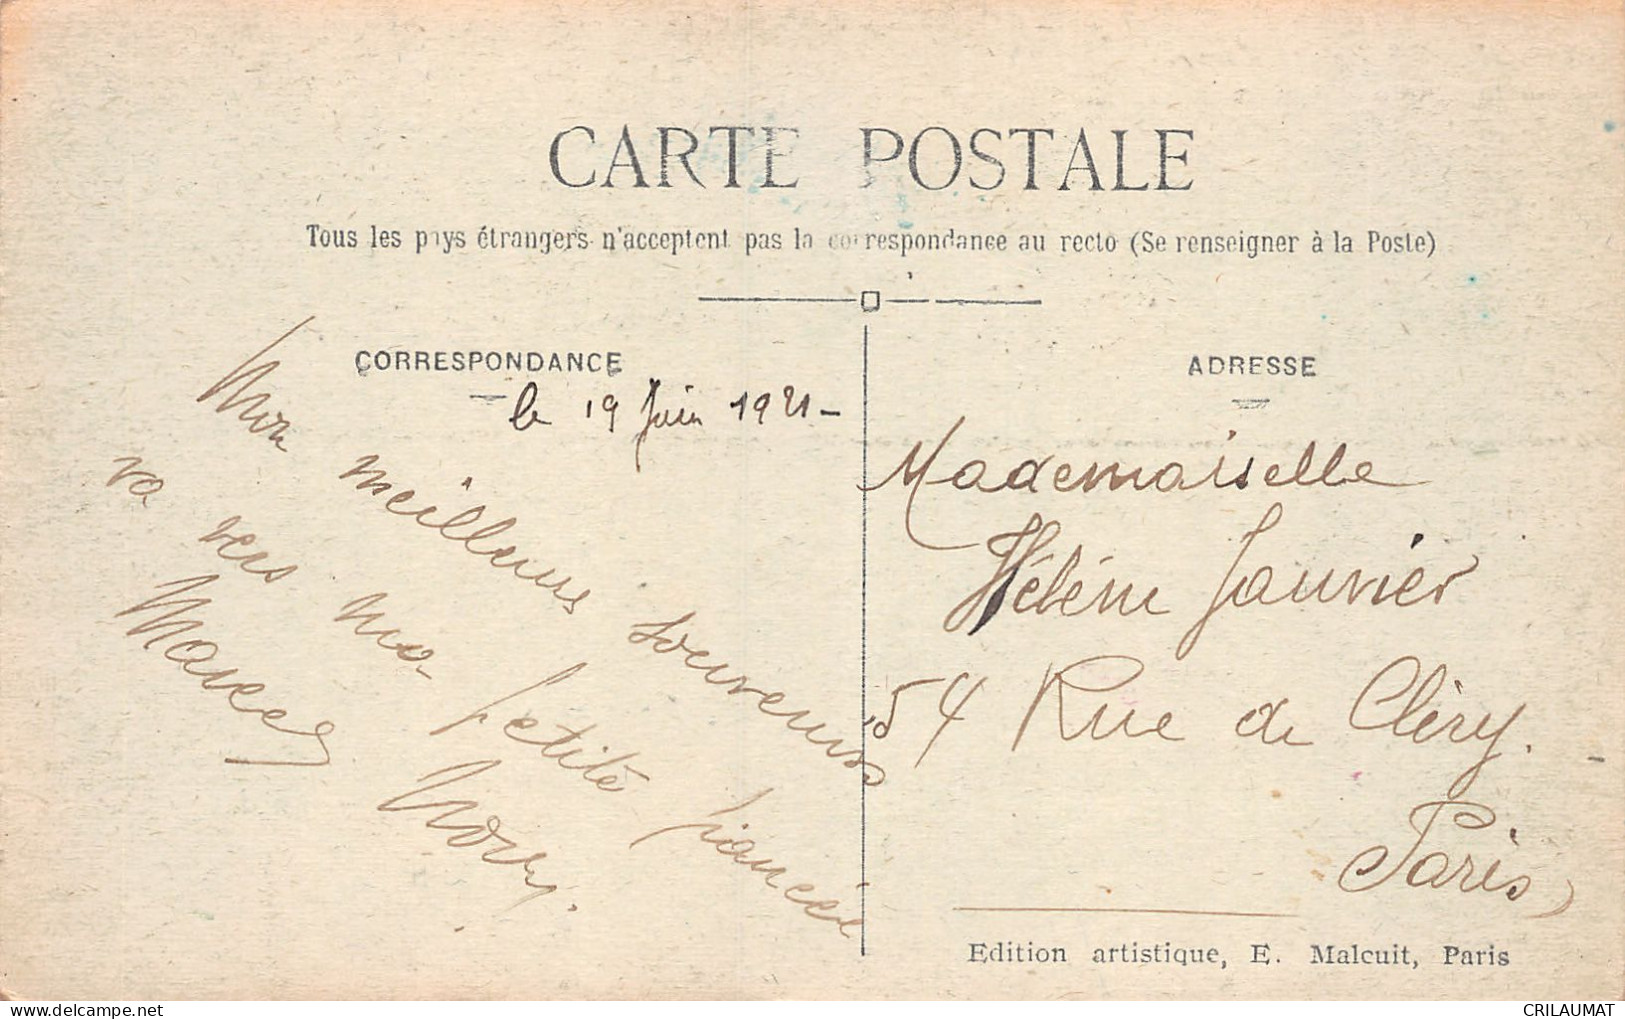 CARTE POSTALE
Tous les pays étrangers n'acceptent pas la correspondance au recto (Se renseigner à la Poste)
CORRESPONDANCE
le 19 Juin 1921-
Mon meilleurs souvenirs
va vers ma petite fiancée
Marcel
ADRESSE
Mademoiselle
Hélène Janvier
54 Rue de Cléry.
Paris
Edition artistique, E. Malcuit, Paris
CRILAUMAT